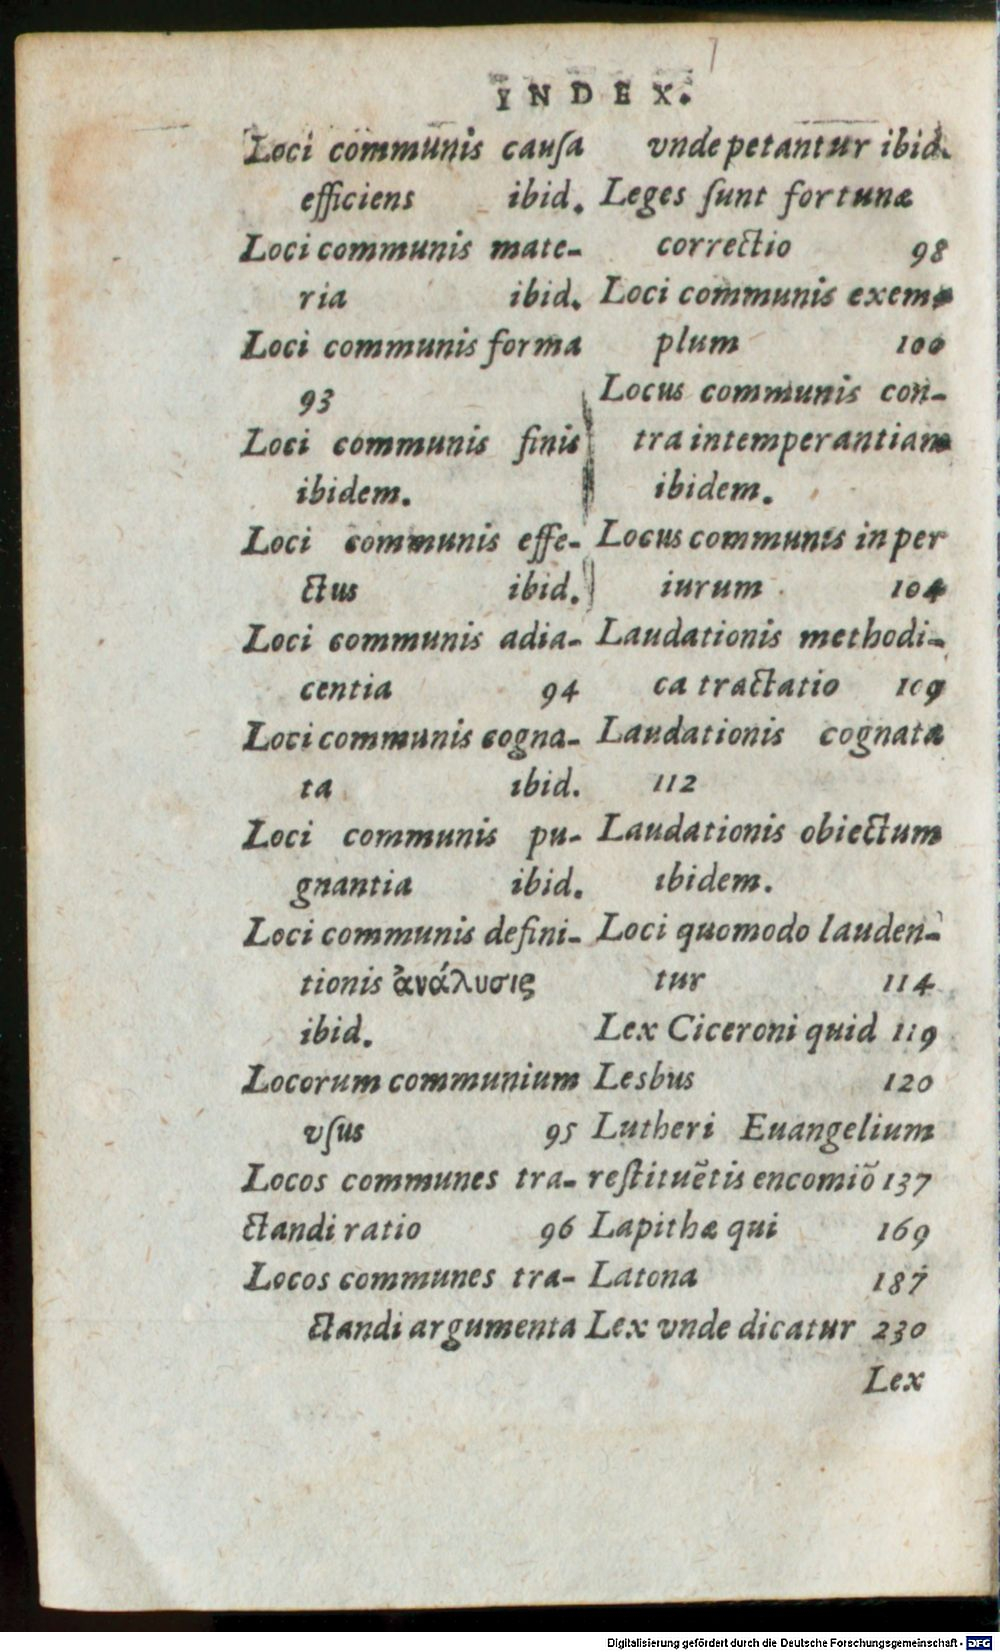 INDEX.
Loci communis cauſa
efficiens ibid.
Loci communis mate-
ria ibid.
Loci communis forma
93
Loci communis finis
ibidem.
Loci communis effe-
ctus ibid.
Loci communis adia-
centia 94
Loci communis cogna-
ta ibid.
Loci communis pu-
gnantia ibid.
Loci communis defini-
tionis ἀνάλυσις
ibid.
Locorum communium
vſus 95
Locos communes tra-
ctandi ratio 96
Locos communes tra-
ctandi argumenta
vnde petantur ibid.
Leges ſunt fortunæ
correctio 98
Loci communis exem-
plum 100
Locus communis con-
tra intemperantiam
ibidem.
Locus communis in per
iurum 104
Laudationis methodi-
ca tractatio 109
Laudationis cognata
112
Laudationis obiectum
ibidem.
Loci quomodo lauden-
tur 114
Lex Ciceroni quid 119
Lesbus 120
Lutheri Euangelium
reſtituẽtis encomiõ 137
Lapithæ qui 169
Latona 187
Lex vnde dicatur 230
Lex
Digitalisierung gefördert durch die Deutsche Forschungsgemeinschaft - DFG